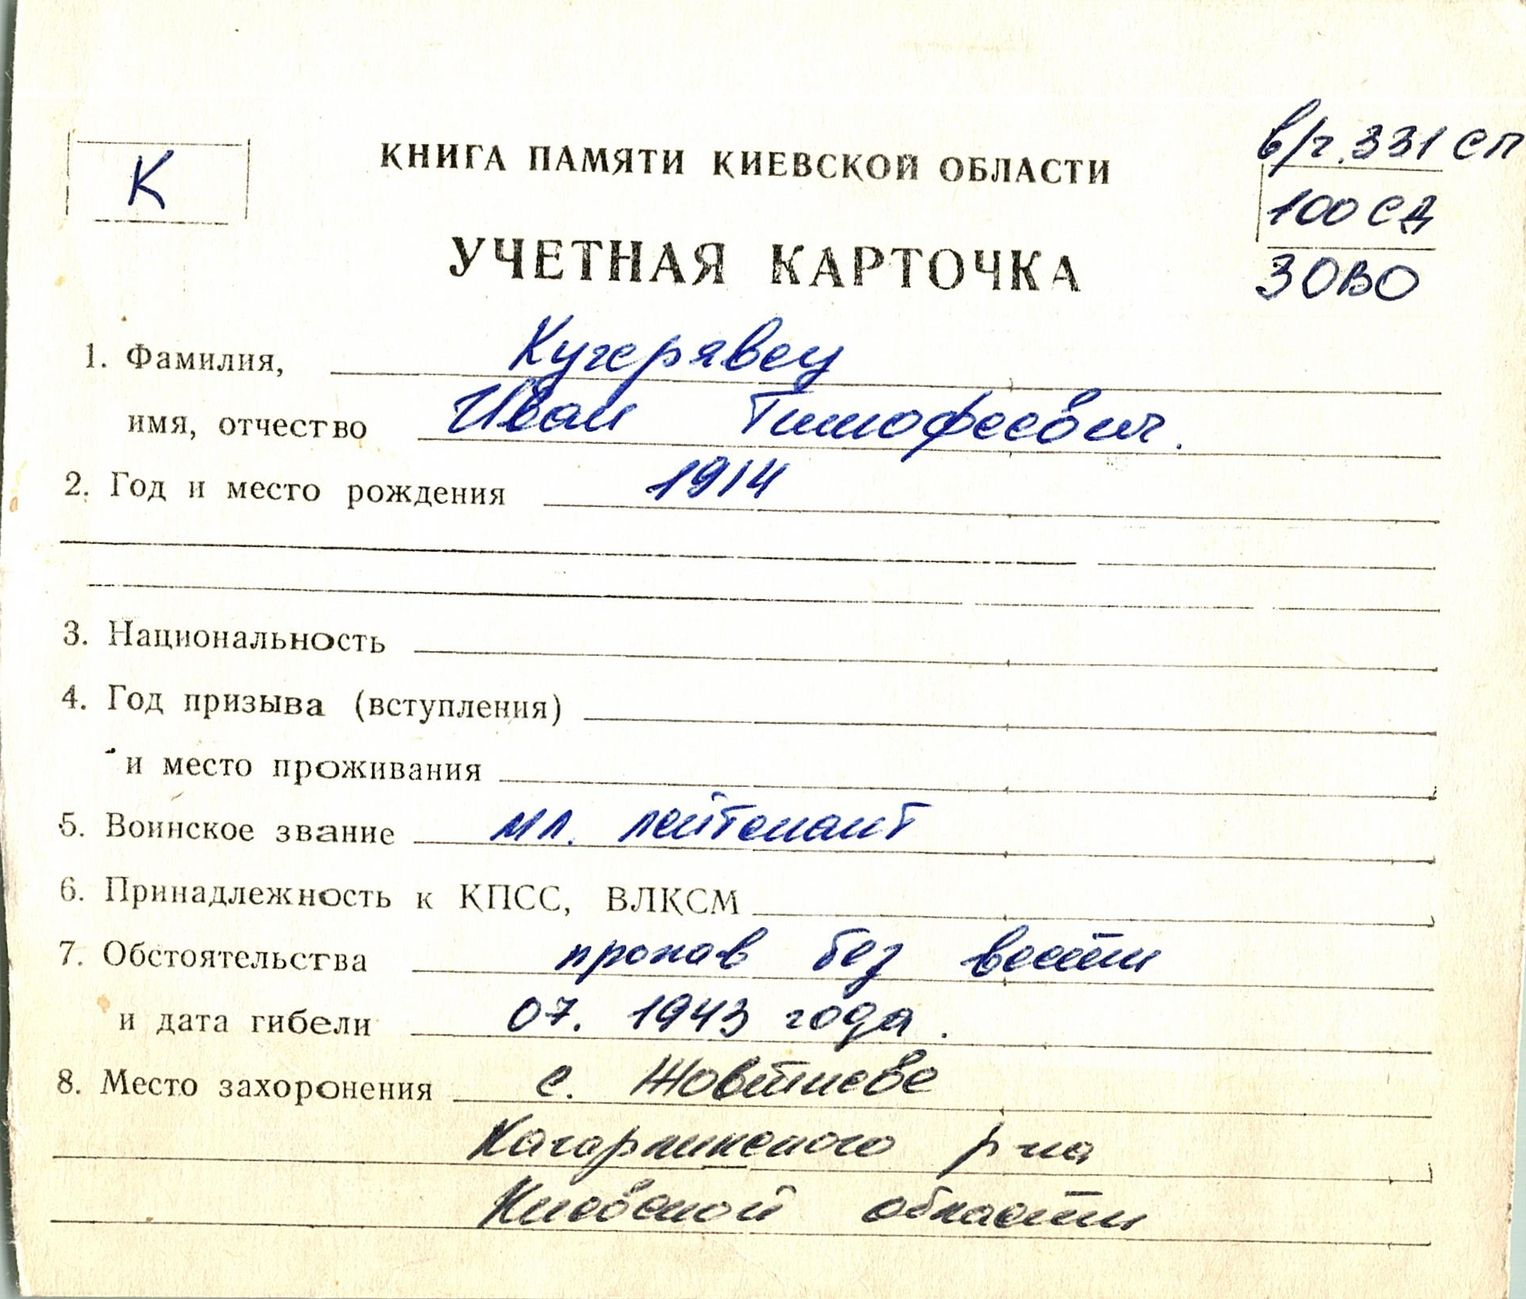 К
КНИГА ПАМЯТИ КИЕВСКОЙ ОБЛАСТИ
в/ч. 331 СП
100 СД
ЗОВО
УЧЕТНАЯ КАРТОЧКА
1. Фамилия, Кучерявец
имя, отчество Иван Тимофеевич.
2. Год и место рождения 1914
3. Национальность
4. Год призыва (вступления)
и место проживания
5. Воинское звание мл. лейтенант
6. Принадлежность к КПСС, ВЛКСМ
7. Обстоятельства пропав без вести
и дата гибели 07. 1943 года.
8. Место захоронения с. Жовтневе
Кагарлинского р-на
Киевской области